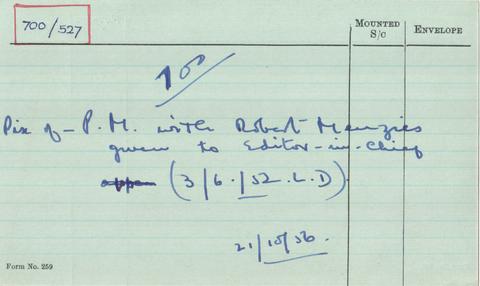 700/527
MOUNTED
S/C
ENVELOPE
Pix of - P.M. with Robert Menzies
given to Editor-in-Chief
(3/6./52.L.D)
21/10/56.
Form No. 259